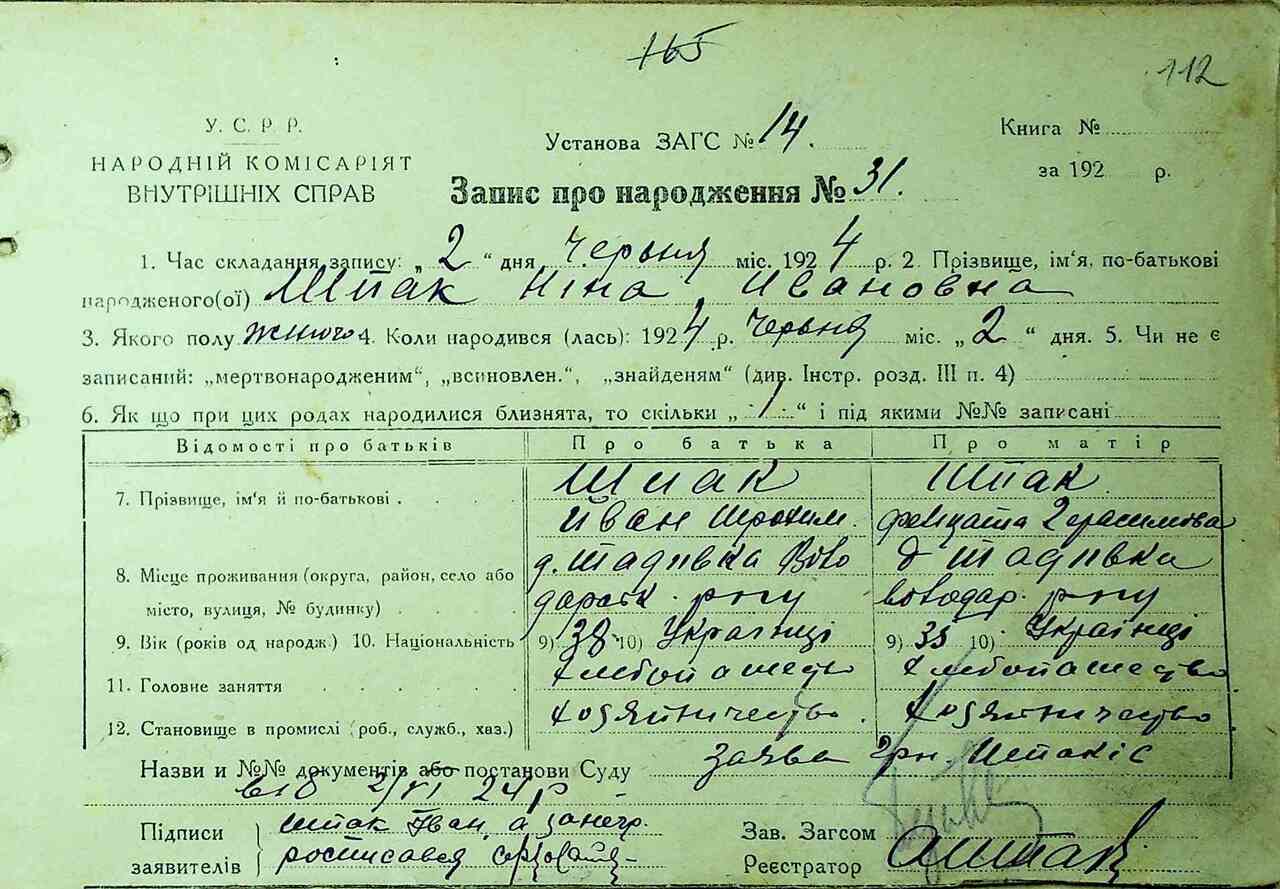 165
112
У. С. Р Р.
НАРОДНІЙ КОМІСАРІЯТ
ВНУТРІШНІХ СПРАВ
Установа ЗАГС № 14.
Книга №
за 192 р.
Запис про народження № 31.
1. Час складання запису: „2“ дня червня міс. 1924 р. 2. Прізвище, ім'я, по-батькові
народженого(ої) Шпак Ніна Ивановна
3. Якого полу 4. Коли народився (лась): 1924 р. червня міс. „2“ дня. 5. Чи не є
записаний: „мертвонародженим“, „всиновлен.“, „знайденям“ (див. Інстр. розд. III п. 4)
6. Як що при цих родах народилися близнята, то скільки „1“ і під якими №№ записані
Відомості про батьків Про батька Про матір
7. Прізвище, ім'я й по-батькові . . . . Шпак Шпак
Иван Трохим. Герасимова
8. Місце проживання (округа, район, село або д. Тадіївка Воло д Тадіївка
місто, вулиця, № будинку) . . . . дарськ. рну Володар. рну
9. Вік (років од народж.) 10. Національність 9) 38 10) Українці 9) 35 10) Українці
11. Головне заняття . . . . . хлебопашество
12. Становище в промислі (роб., служб., хаз.) хозяйничество хозяйничество
Назви и №№ документів або постанови Суду заява грн. Шпак
від 2/VI 24 р
Підписи
заявителів
Шпак Іван, а за негр.
росписався
Зав. Загсом
Реєстратор